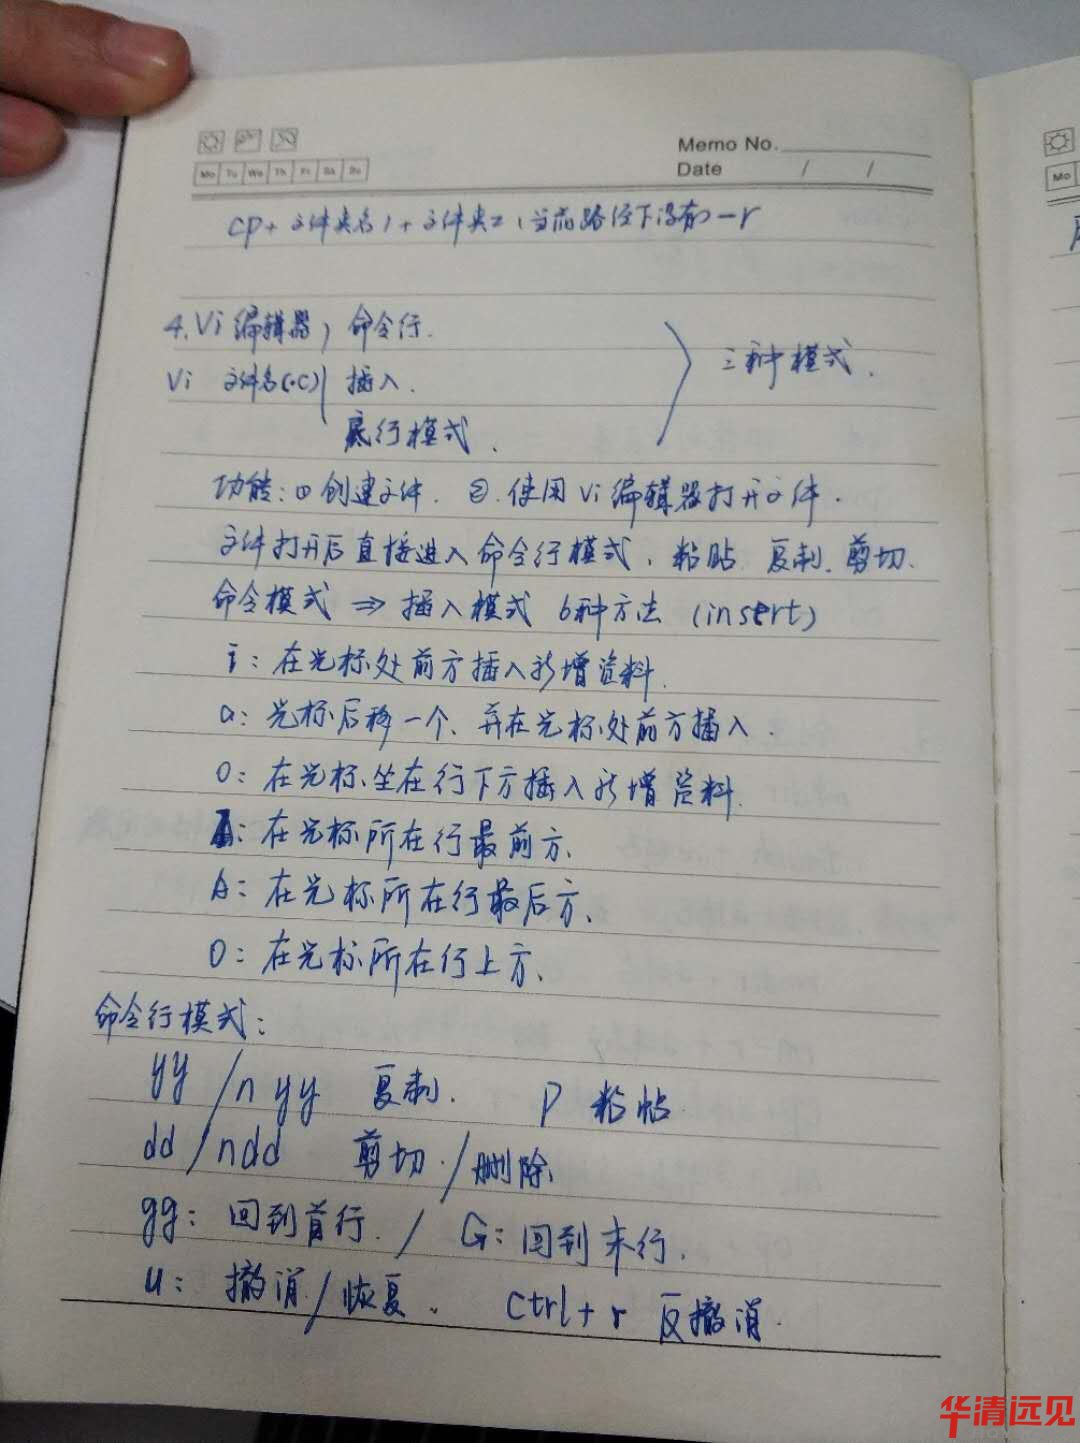 Memo No.
Mo Tu We Th Fr Sa Su
Date / /
cp+ 文件夹名1+文件夹2(当前路径下没有)-r
4.Vi编辑器 命令行.
三种模式.
Vi 文件名(.c) 插入.
底行模式.
功能:①创建文件. ②.使用Vi编辑器打开文件.
文件打开后直接进入命令行模式、粘贴 复制、剪切.
命令模式 ⇒ 插入模式 6种方法 (insert)
i:在光标处前方插入新增资料.
a:光标后移一个、并在光标处前方插入.
o:在光标坐在行下方插入新增资料.
I:在光标所在行最前方、
A:在光标所在行最后方、
O:在光标所在行上方、
命令行模式:
yy /nyy 复制. p 粘帖
dd/ndd 剪切./删除.
gg:回到首行./ G:回到末行.
u:撤消/恢复. Ctrl+r 反撤消.
Mo
华清远见